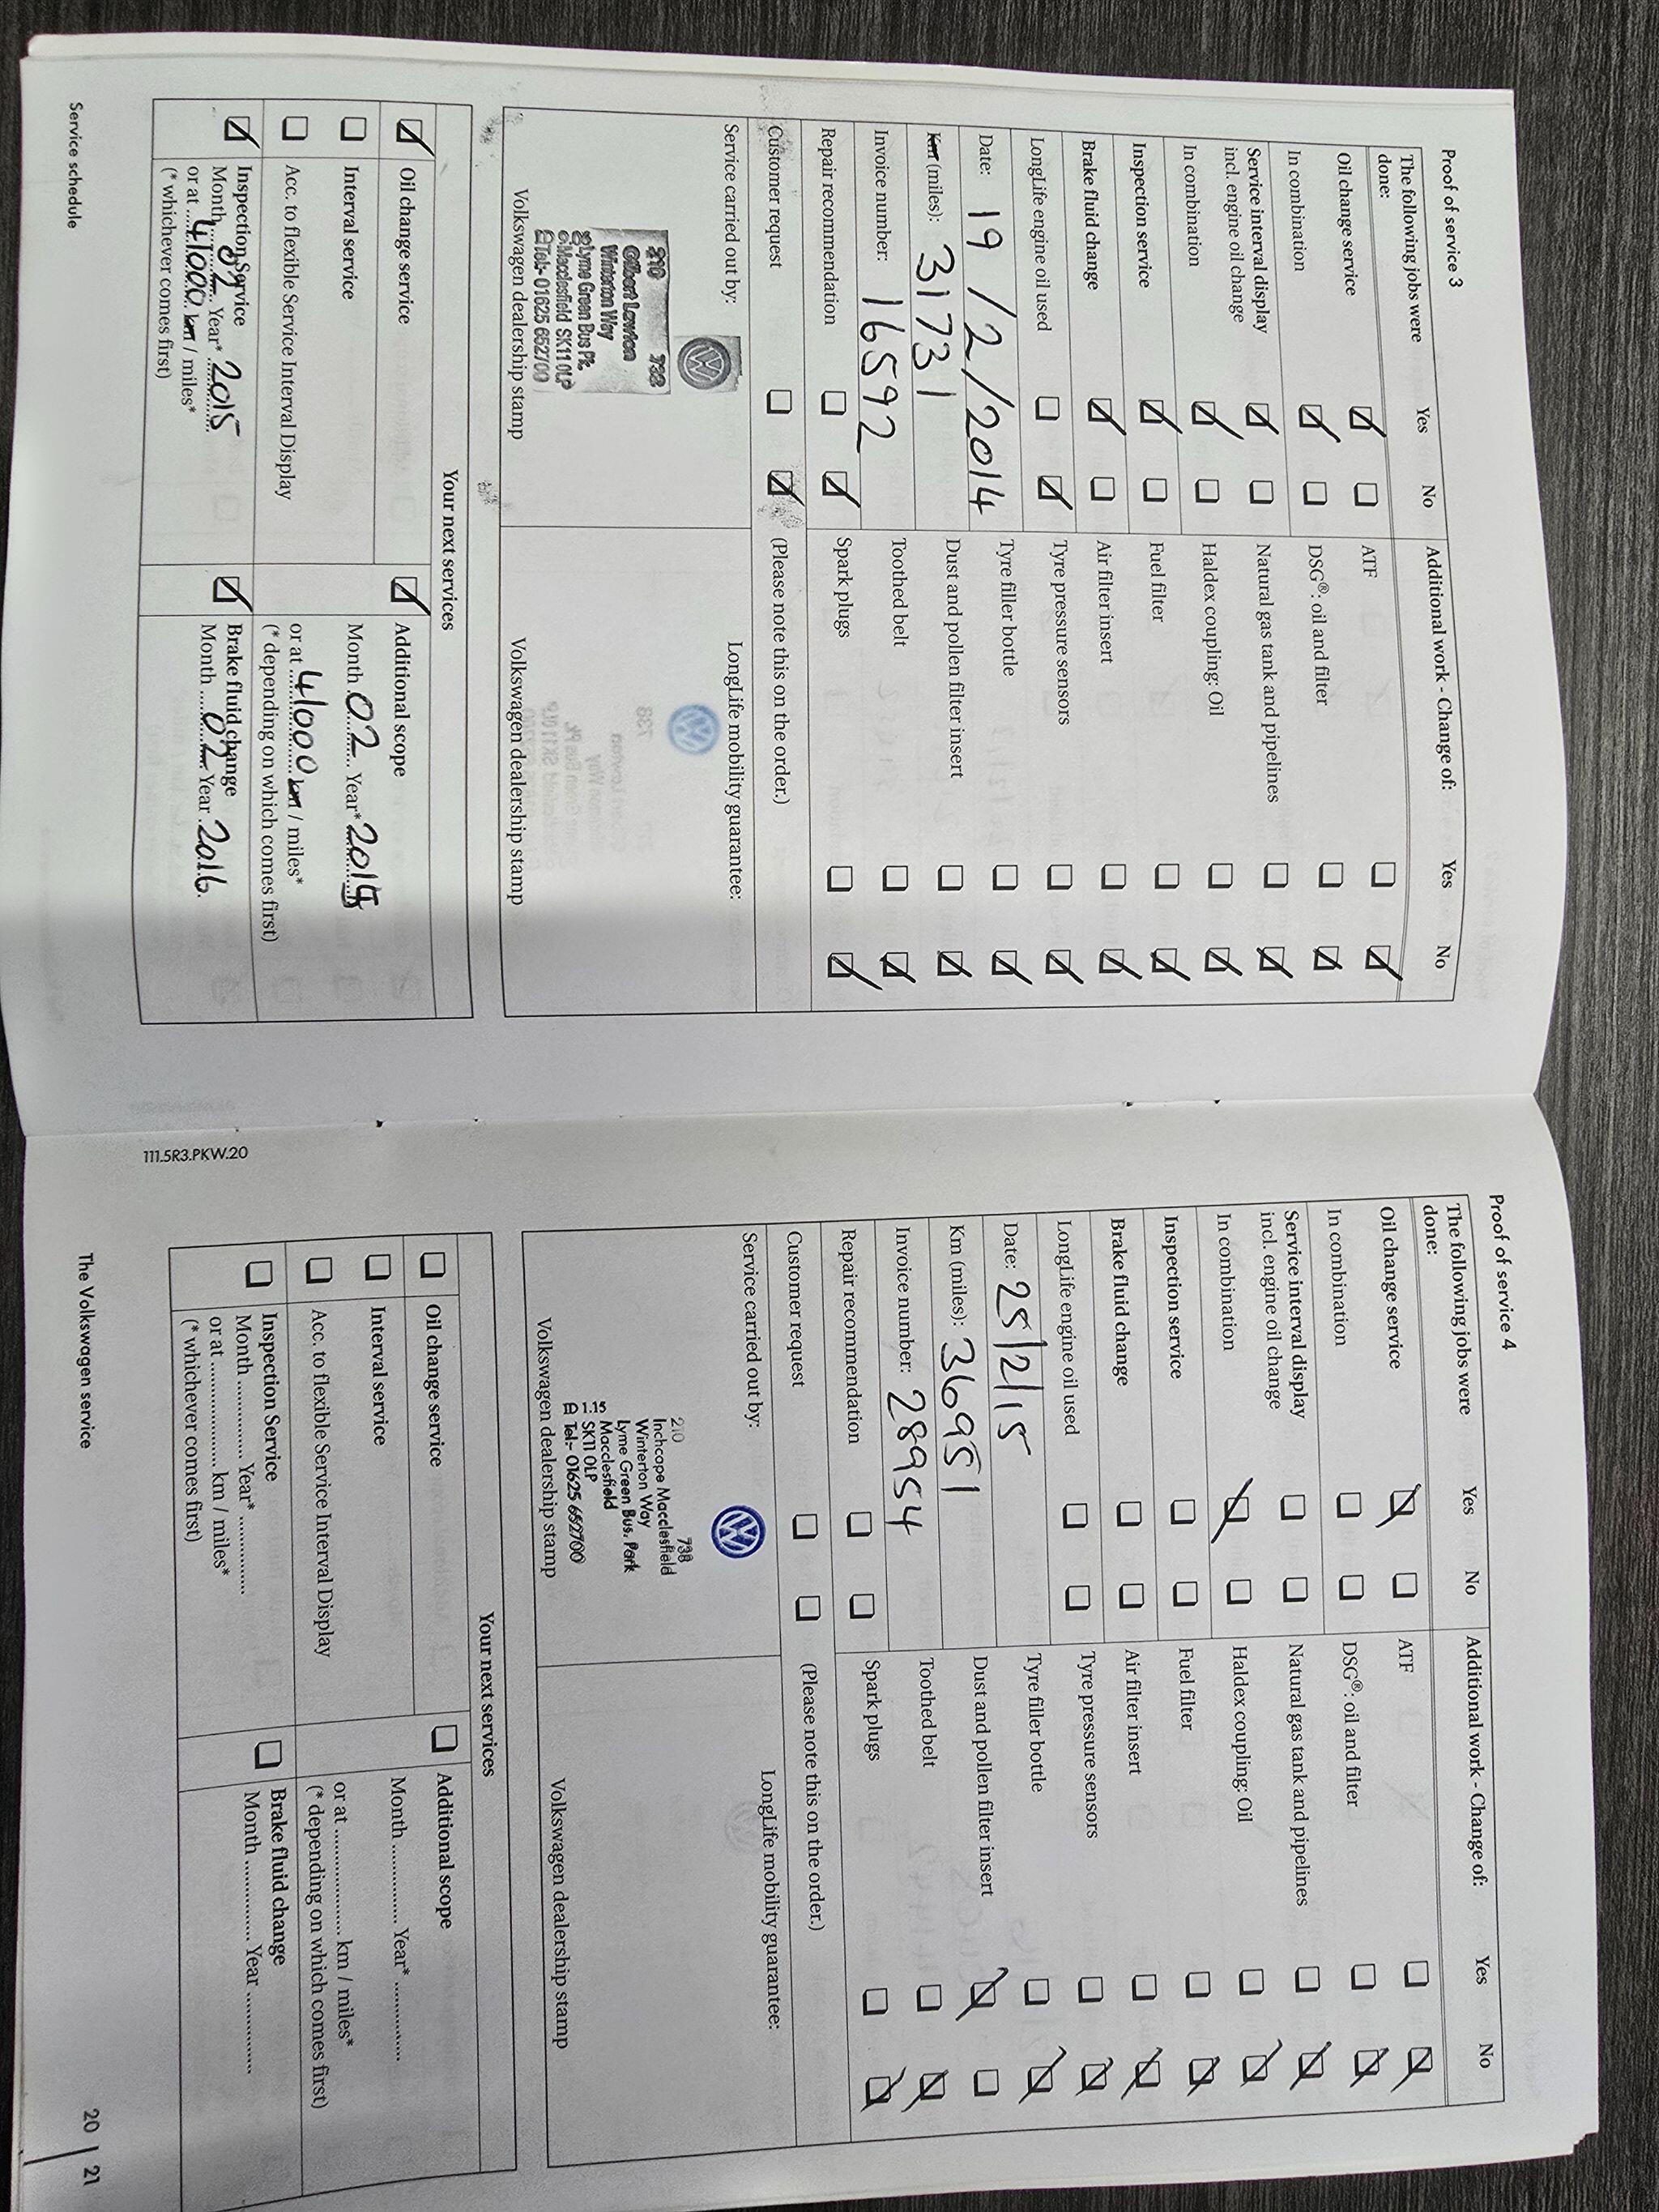 Proof of service 3
The following jobs were
done:
Yes
No
Additional work - Change of:
Yes
No
Oil change service
ATF
In combination
DSG®: oil and filter
Service interval display
incl. engine oil change
Natural gas tank and pipelines
In combination
Haldex coupling: Oil
Inspection service
Fuel filter
Brake fluid change
Air filter insert
LongLife engine oil used
Tyre pressure sensors
Date: 19/2/2014
Tyre filler bottle
Km (miles): 31731
Dust and pollen filter insert
Invoice number: 16592
Toothed belt
Repair recommendation
Spark plugs
Customer request
(Please note this on the order.)
Service carried out by:
LongLife mobility guarantee:
210 738
Gilbert Lawton
Winterton Way
Lyme Green Bus Pk.
Macclesfield SK11 0LP
Tel:- 01625 652700
Volkswagen dealership stamp
Volkswagen dealership stamp
Your next services
Oil change service
Additional scope
Interval service
Month 02 Year* 2015
Acc. to flexible Service Interval Display
or at 41000 km / miles*
(* depending on which comes first)
Inspection Service
Month 02 Year* 2015
or at 41000 km / miles*
(* whichever comes first)
Brake fluid change
Month 02 Year 2016.
Service schedule
111.5R3.PKW.20
Proof of service 4
The following jobs were
done:
Yes
No
Additional work - Change of:
Yes
No
Oil change service
ATF
In combination
DSG®: oil and filter
Service interval display
incl. engine oil change
Natural gas tank and pipelines
In combination
Haldex coupling: Oil
Inspection service
Fuel filter
Brake fluid change
Air filter insert
LongLife engine oil used
Tyre pressure sensors
Date: 25/2/15
Tyre filler bottle
Km (miles): 36951
Dust and pollen filter insert
Invoice number: 28954
Toothed belt
Repair recommendation
Spark plugs
Customer request
(Please note this on the order.)
Service carried out by:
LongLife mobility guarantee:
210 738
Inchcape Macclesfield
Winterton Way
Lyme Green Bus. Park
Macclesfield
1.15 SK11 0LP
Tel:- 01625 652700
Volkswagen dealership stamp
Volkswagen dealership stamp
Your next services
Oil change service
Additional scope
Interval service
Month ............ Year* ............
Acc. to flexible Service Interval Display
or at .................... km / miles*
(* depending on which comes first)
Inspection Service
Month ............ Year* ............
or at .................... km / miles*
(* whichever comes first)
Brake fluid change
Month ............ Year ............
The Volkswagen service
20 | 21